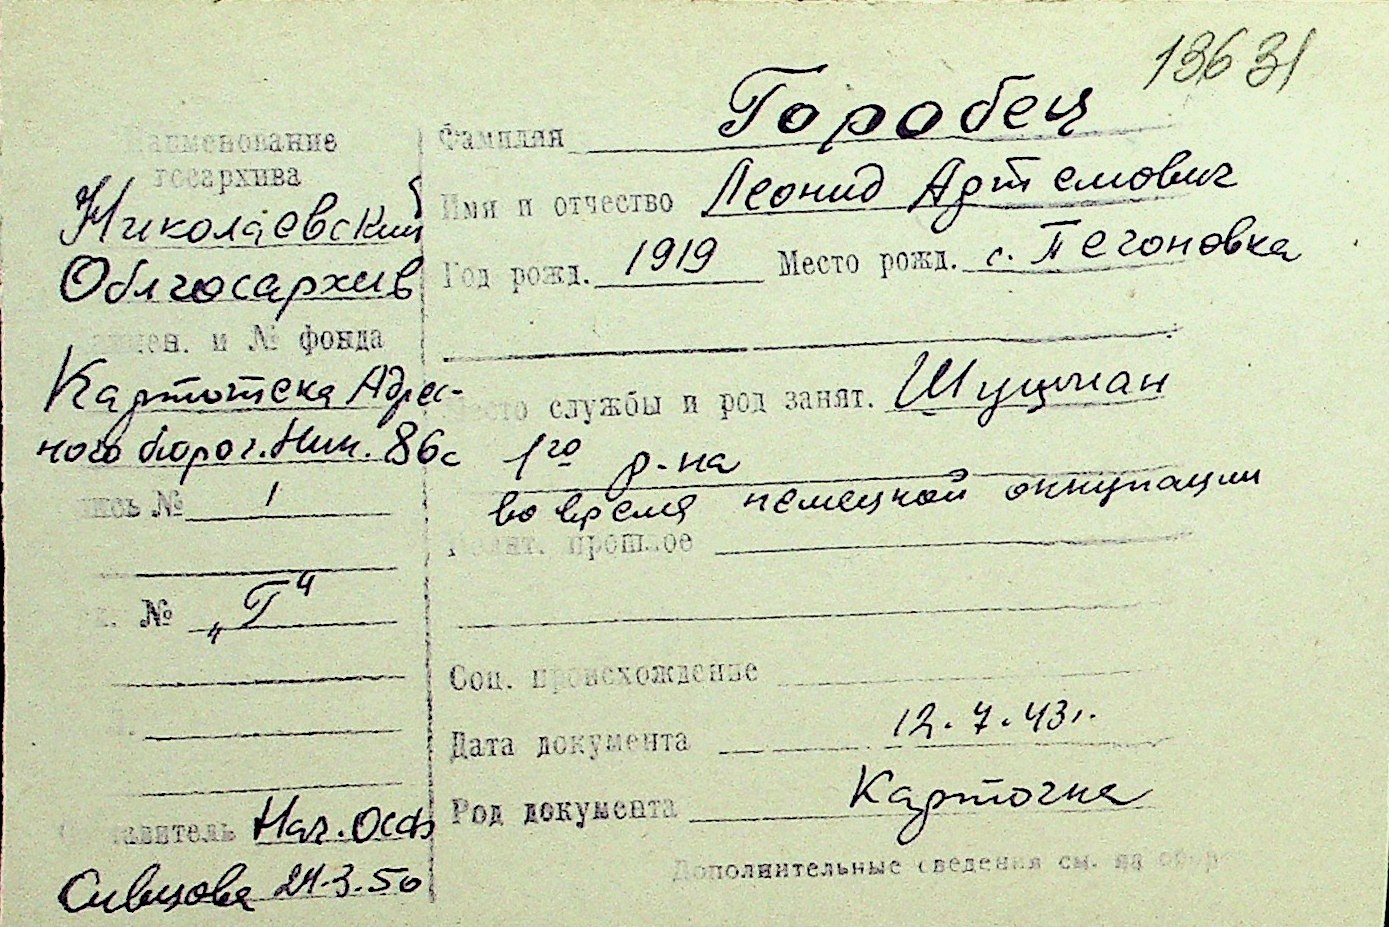 13631
Наименование
госархива
Николаевский
Облгосархив
Наимен. и № фонда
Картотека Адрес-
ного бюро г. Ник. 86с
Опись № 1
№ „Г“
Составитель Нач. Осф
24.3.50
Фамилия Горобец
Имя и отчество Леонид Артемович
Год рожд. 1919 Место рожд. с. Пегоновка
Место службы и род занят. Шуцман
1го р-на
во время немецкой оккупации
Полит. прошлое
Соц. происхожденье
Дата документа 12.7.43г.
Род документа Карточка
Дополнительные сведения см. на обор